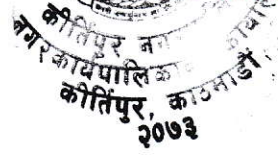 कीर्तिपुर नग
नगरकार्यपालिका
कीर्तिपुर, काठमाडौं
२०७३